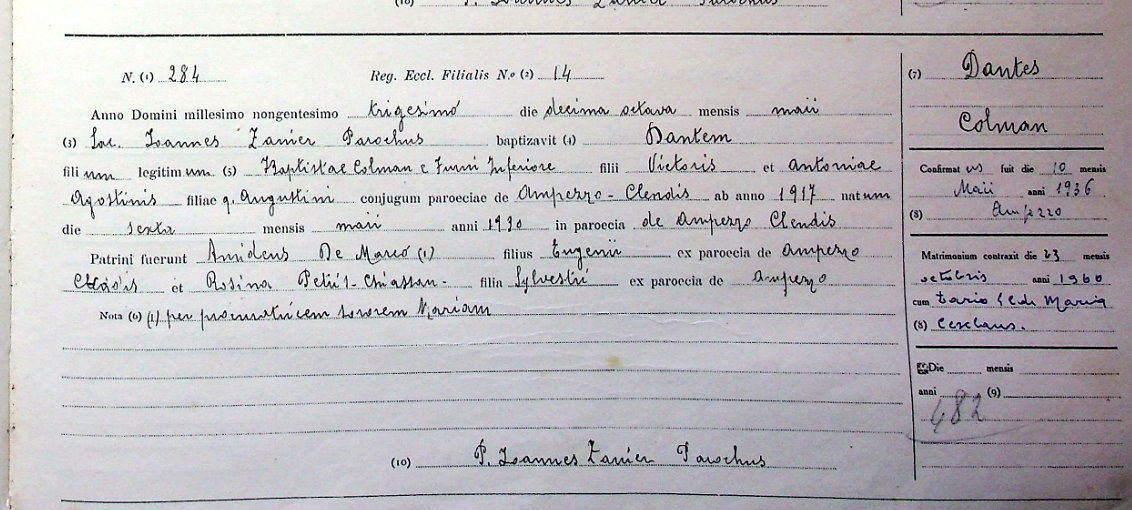 (10) P. Joannes Zanier Parochus
N. (1) 284 Reg. Eccl. Filialis N.o (2) 14
Anno Domini millesimo nongentesimo trigesimo die decima octava mensis maii
(3) Sac. Joannes Zanier Parochus baptizavit (4) Dantem
fili um legitim um (5) Baptistae Colman e Furni Inferiore filii Victoris et Antoniae
Agostinis filiae q. Augustini conjugum paroeciae de Ampezzo - Clendis ab anno 1917 natum
die sexta mensis maii anni 1930 in paroecia de Ampezzo Clendis
Patrini fuerunt Amideus De Marco (1) filius Eugenii ex paroecia de Ampezzo
et Rosina Petris- filia Sylvestri ex paroecia de Ampezzo
Nota (6) (1) per procuratricem sororem Mariam
(10) P. Joannes Zanier Parochus
(7) Dantes
Colman
Confirmatus fuit die 10 mensis
Maii anni 1936
(8) Ampezzo
Matrimonium contraxit die 23 mensis
octobris anni 1960
cum Maria
(8)
Die mensis
anni (9)
482